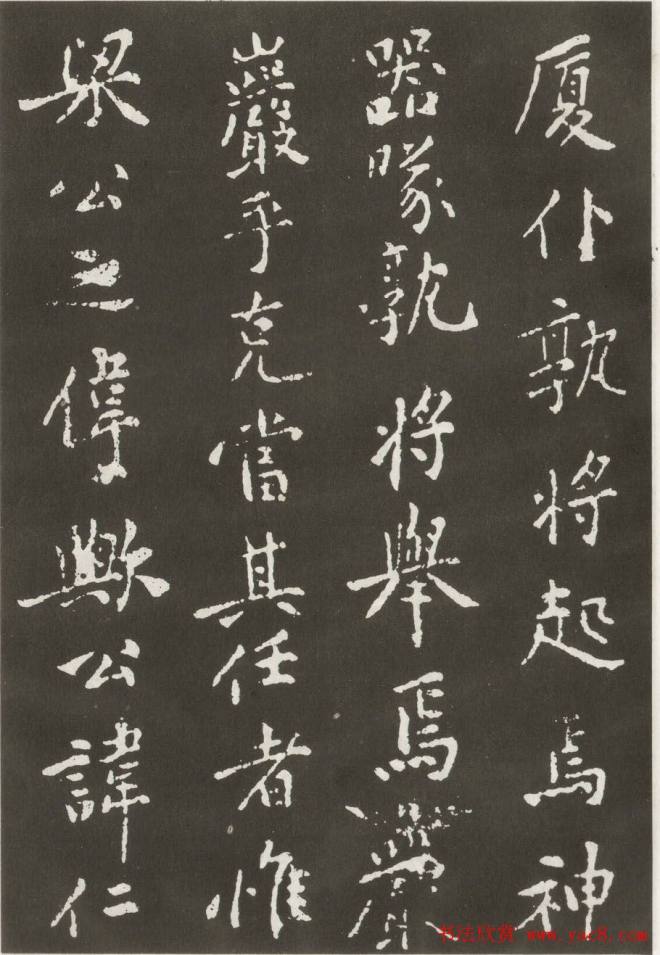 廈仆孰将起焉神
器隊孰将舉焉巖
巖乎克當其任者惟
梁公之偉歟公諱仁
书法欣赏 www.yac8.com